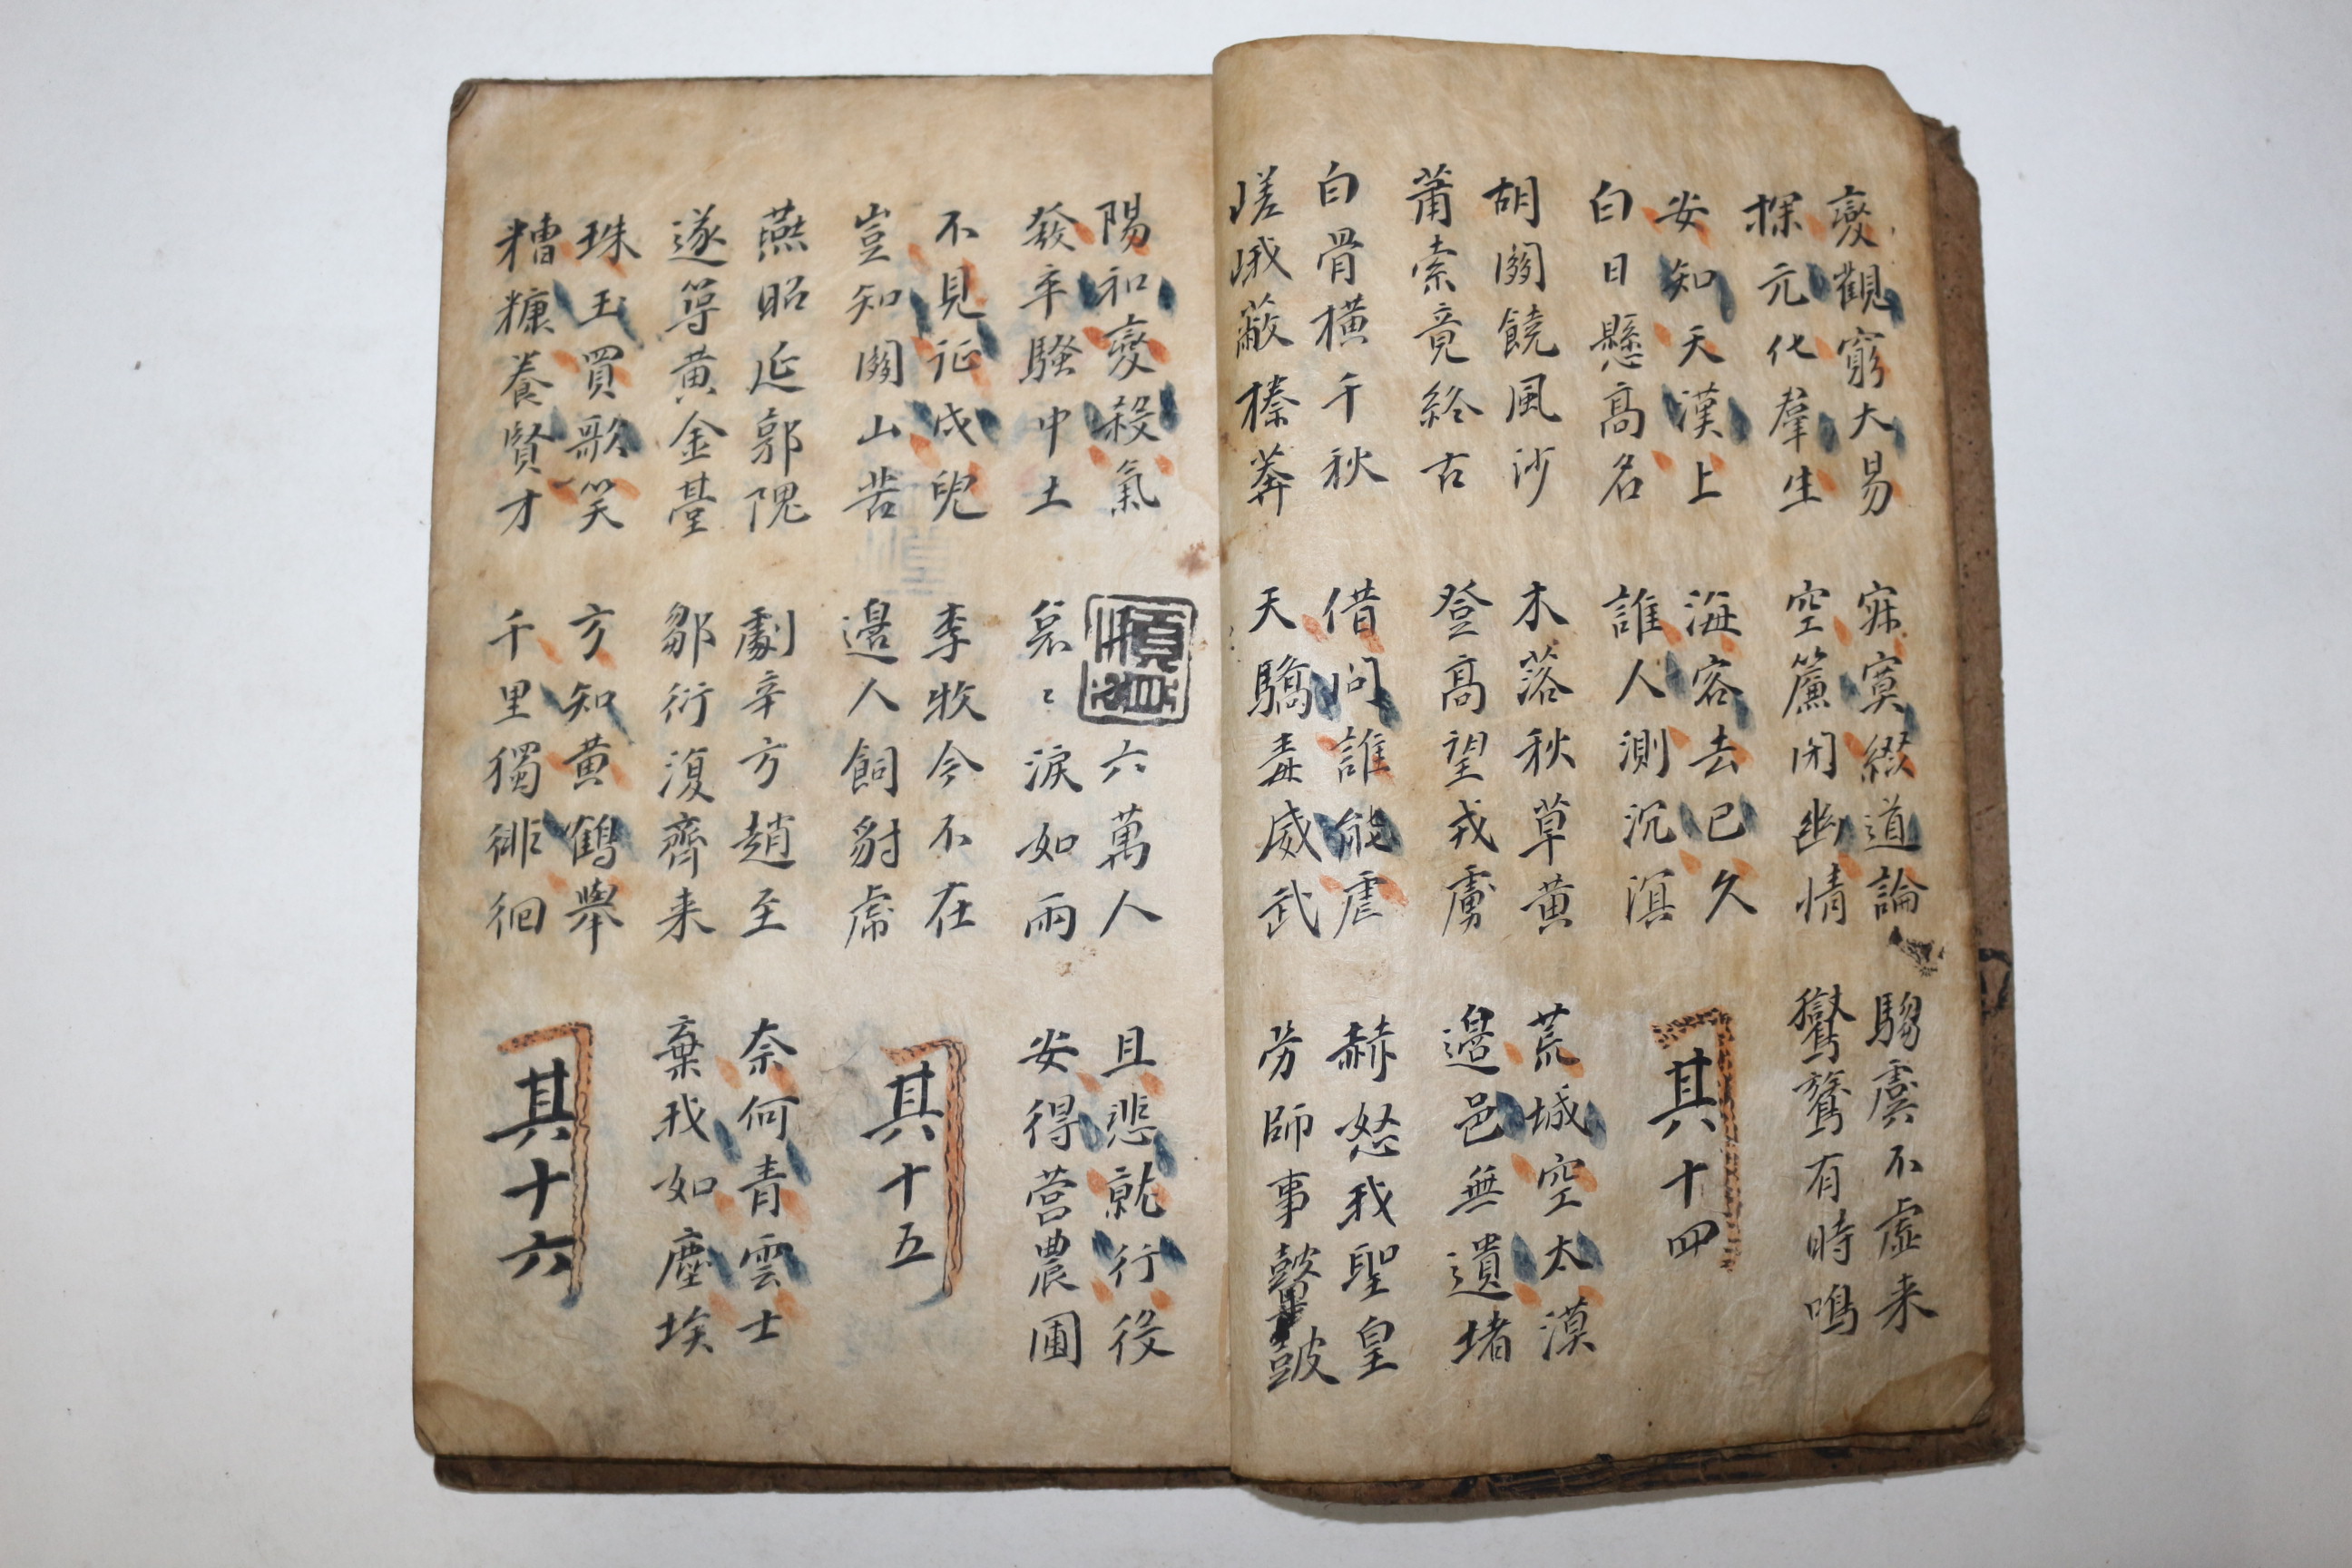 變觀窮大易
探元化羣生
寂寞綴道論
空簾閉幽情
騶虞不虛来
鸑鷟有時鳴
安知天漢上
白日懸高名
海客去已久
誰人測沉溟
其十四
胡關饒風沙
蕭索竟終古
木落秋草黄
登高望戎虜
荒城空太漠
邊邑無遺堵
白骨橫千秋
嵯峨蔽榛莽
借問誰能虐
天驕毒威武
赫怒我聖皇
勞師事鼙鼓
陽和變殺氣
發卒騷中土
六萬人
哀〻淚如雨
且悲就行役
安得营農圃
不見征戍兒
豈知關山苦
李牧今不在
邊人飼豺虎
其十五
燕昭延郭隗
遂築黄金臺
劇辛方趙至
鄒衍復齊来
奈何青雲士
棄我如塵埃
珠玉買歌笑
糟糠養賢才
方知黄鶴舉
千里獨徘徊
其十六